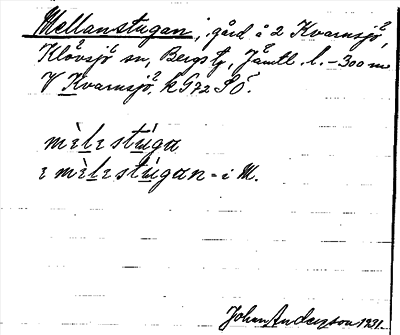 Mellanstugan, gård å 2 Kvarnsjö,
Klövsjö sn, Bergs tg, Jämtl. l. – 300 m
V Kvarnsjö, k 972 SÖ.
mèlestúga
ɪ mèlestúgan = i M.
Johan Anderzon 1931.